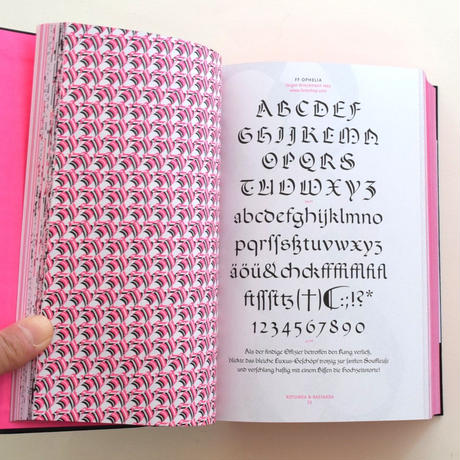 FF OPHELIA
ABCDEF
GHIJKLMN
OPQRS
TUVWXYZ
abcdefghijklmno
pqrſsßtuvwxyz
äöü&chckfffiffiflffl
ſtſſſitz(†)☾:;!?*
1234567890
Als der findige Offizier betroffen den Rang verließ,
blickte das bleiche Luxus-Geschöpf trotzig zur sanften Souffleuse
und verschlang hastig mit einem Bissen die Hochzeitstorte!
ROTUNDA & BASTARDA